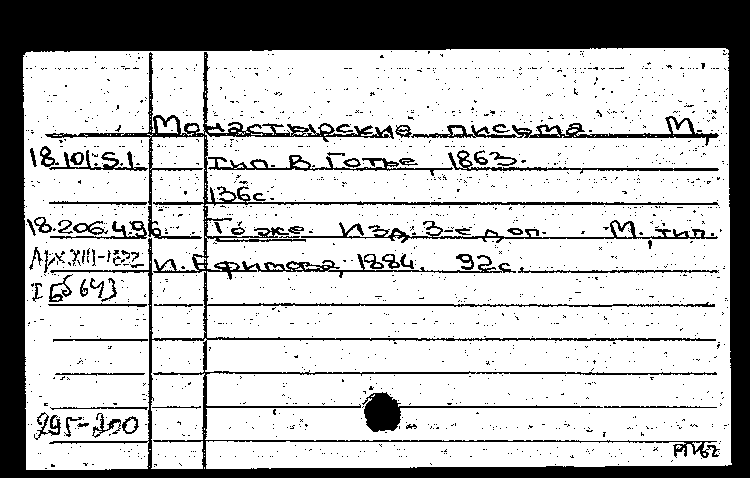 Монастырские письма. М.,
18.101.5.1. тип. В. Готье, 1863.
136с.
18.206.4.96. То же. Изд. 3-е доп. М., тип.
Арх.XIII-1822 И. Ефимова, 1884. 92с.
I Бб 643
295-200